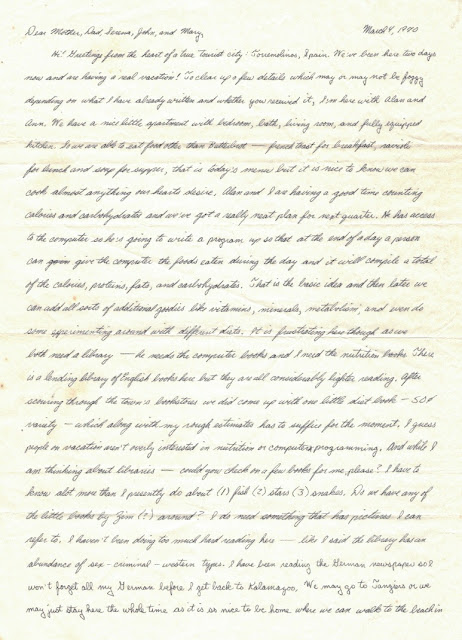 Dear Mother, Dad, Teresa, John, and Mary, March 4, 1970
Hi! Greetings from the heart of a true tourist city: Torremolinos, Spain. We've been here two days
now and are having a real vacation! To clear up a few details which may or may not be foggy
depending on what I have already written and whether you received it, I'm here with Alan and
Ann. We have a nice little apartment with bedroom, bath, living room, and fully equipped
kitchen. So we are able to eat food other than Butterbrot — french toast for breakfast, ravioli
for lunch and soup for supper, that is today's menu but it is nice to know we can
cook almost anything our hearts desire. Alan and I are having a good time counting
calories and carbohydrates and we've got a really neat plan for next quarter. He has access
to the computer so he's going to write a program up so that at the end of a day a person
can give the computer the foods eaten during the day and it will compile a total
of the calories, proteins, fats, and carbohydrates. That is the basic idea and then later we
can add all sorts of additional goodies like vitamins, minerals, metabolism, and even do
some experimenting around with different diets. It is frustrating here though as we
both need a library — he needs the computer books and I need the nutrition books. There
is a lending library of English books here but they are all considerably lighter reading. After
scouring through the town's bookstores we did come up with one little diet book — 50¢
variety — which along with my rough estimates has to suffice for the moment. I guess
people on vacation aren't overly interested in nutrition or computer programming. And while I
am thinking about libraries — could you check on a few books for me, please? I have to
know alot more than I presently do about (1) fish (2) stars (3) snakes. Do we have any of
the little books by Zim (?) around? I do need something that has pictures I can
refer to. I haven't been doing too much hard reading here — like I said the library has an
abundance of sex - criminal - western types. I have been reading the German newspaper so I
won't forget all my German before I get back to Kalamazoo. We may go to Tangiers or we
may just stay here the whole time as it is so nice to be home where we can walk to the beach in